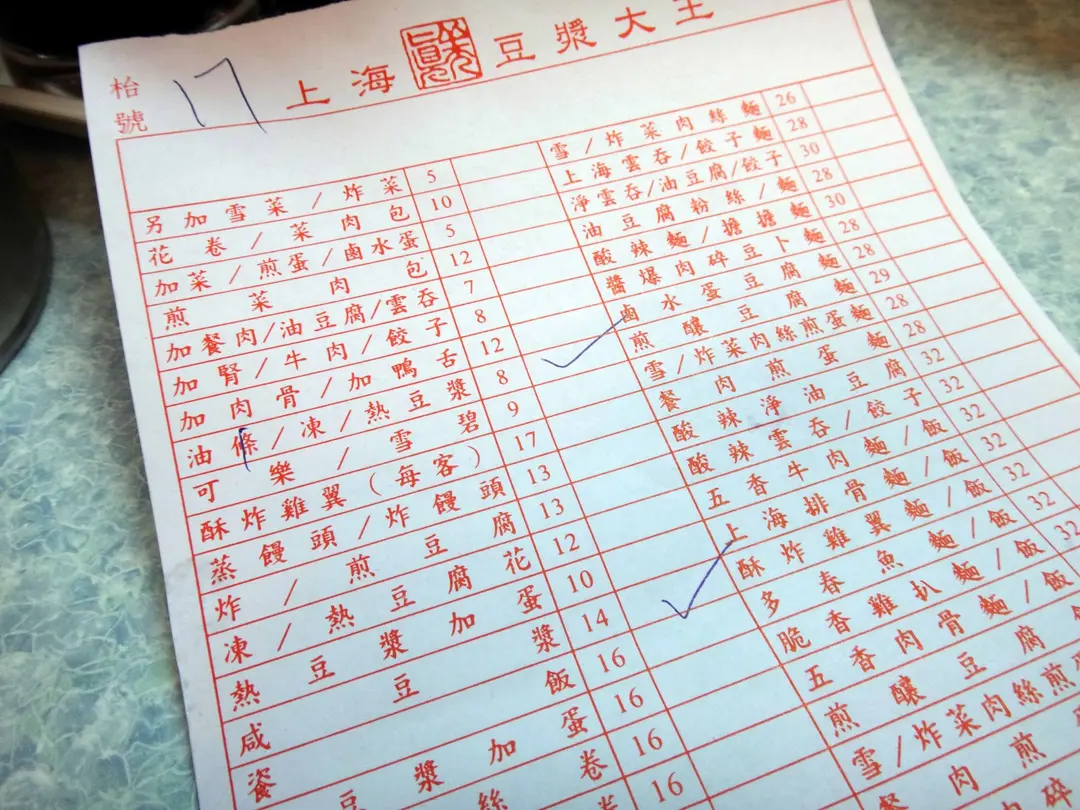 枱號 17
上海 豆漿大王
另加雪菜/炸菜 5
花卷/菜肉包 10
加菜/煎蛋/鹵水蛋 5
煎菜肉包 12
加餐肉/油豆腐/雲吞 7
加腎/牛肉/餃子 8
加肉骨/加鴨舌 12
油條/凍/熱豆漿 8
可樂/雪碧 9
酥炸雞翼(每客) 17
蒸饅頭/炸饅頭 13
炸/煎豆腐 13
凍/熱豆腐花 12
熱豆漿加蛋 10
咸豆漿 14
瓷飯 16
豆漿加蛋 16
絲卷 16
16
雪/炸菜肉絲麵 26
上海雲吞/餃子麵 28
淨雲吞/油豆腐/餃子 30
油豆腐粉絲/麵 28
酸辣麵/擔擔麵 30
醬爆肉碎豆卜麵 28
鹵水蛋豆腐麵 28
煎釀豆腐麵 29
雪/炸菜肉絲煎蛋麵 28
餐肉煎蛋麵 28
酸辣淨油豆腐 32
酸辣雲吞/餃子 32
五香牛肉麵/飯 32
上海排骨麵/飯 32
酥炸雞翼麵/飯 32
多春魚麵/飯 32
脆香雞扒麵/飯 32
五香肉骨麵/飯
煎釀豆腐飯
雪/炸菜肉絲煎
餐肉煎
碎